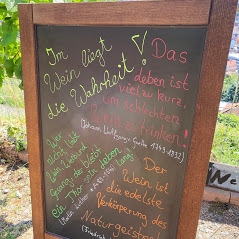 Im
Wein liegt
die Wahrheit!
Das
Leben ist
viel zu kurz,
um schlechten
Wein zu trinken!
(Johann Wolfgang Goethe 1749-1832)
Wer
nicht liebt
Wein, Weib und
Gesang, der bleibt
ein Thor sein Leben lang.
(Martin Luther
Der
Wein ist
die edelste
Verkörperung des
Naturgeistes
(Friedrich